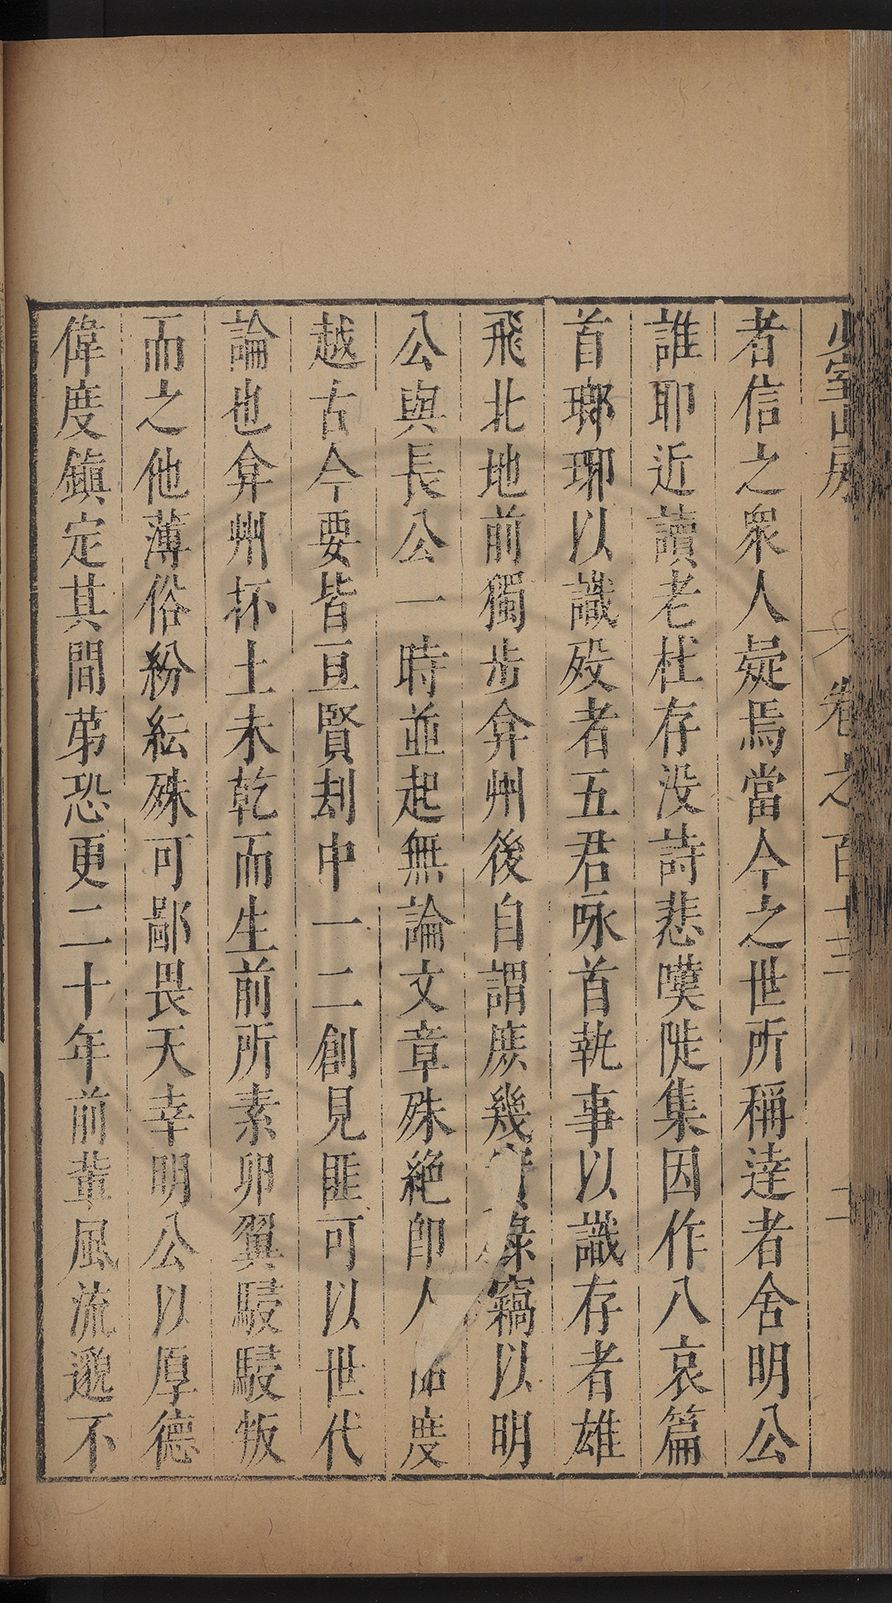 少室山房 卷之百十三 二
者信之衆人疑焉當今之世所稱逹者舍明公
誰耶近讀老杜存没詩悲嘆陡集因作八哀篇
首瑯琊以識歿者五君咏首執事以識存者雄
飛北地前獨步弇州後自謂庶幾竊以明
公與長公一時並起無論文章殊絶卽人度
越古今要皆亘賢刦中一二創見匪可以世代
論也弇州抔土未乾而生前所素卵翼駸駸叛
而之他薄俗紛紜殊可鄙畏天幸明公以厚德
偉度鎮定其間苐恐更二十年前輩風流邈不